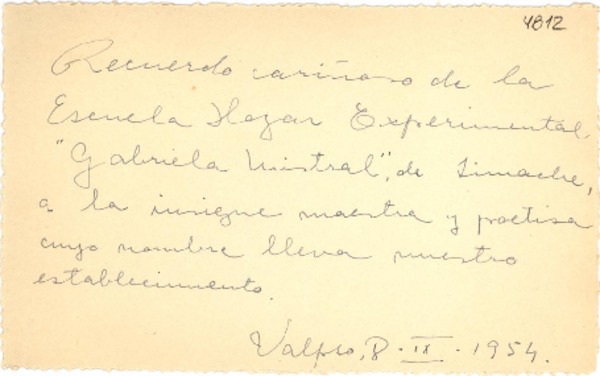 4812
Recuerdo cariñoso de la
Escuela Hogar Experimental
"Gabriela Mistral", de Limache,
a la insigne maestra y poetisa
cuyo nombre lleva nuestro
establecimiento.
Valpso, 8 - IX - 1954.